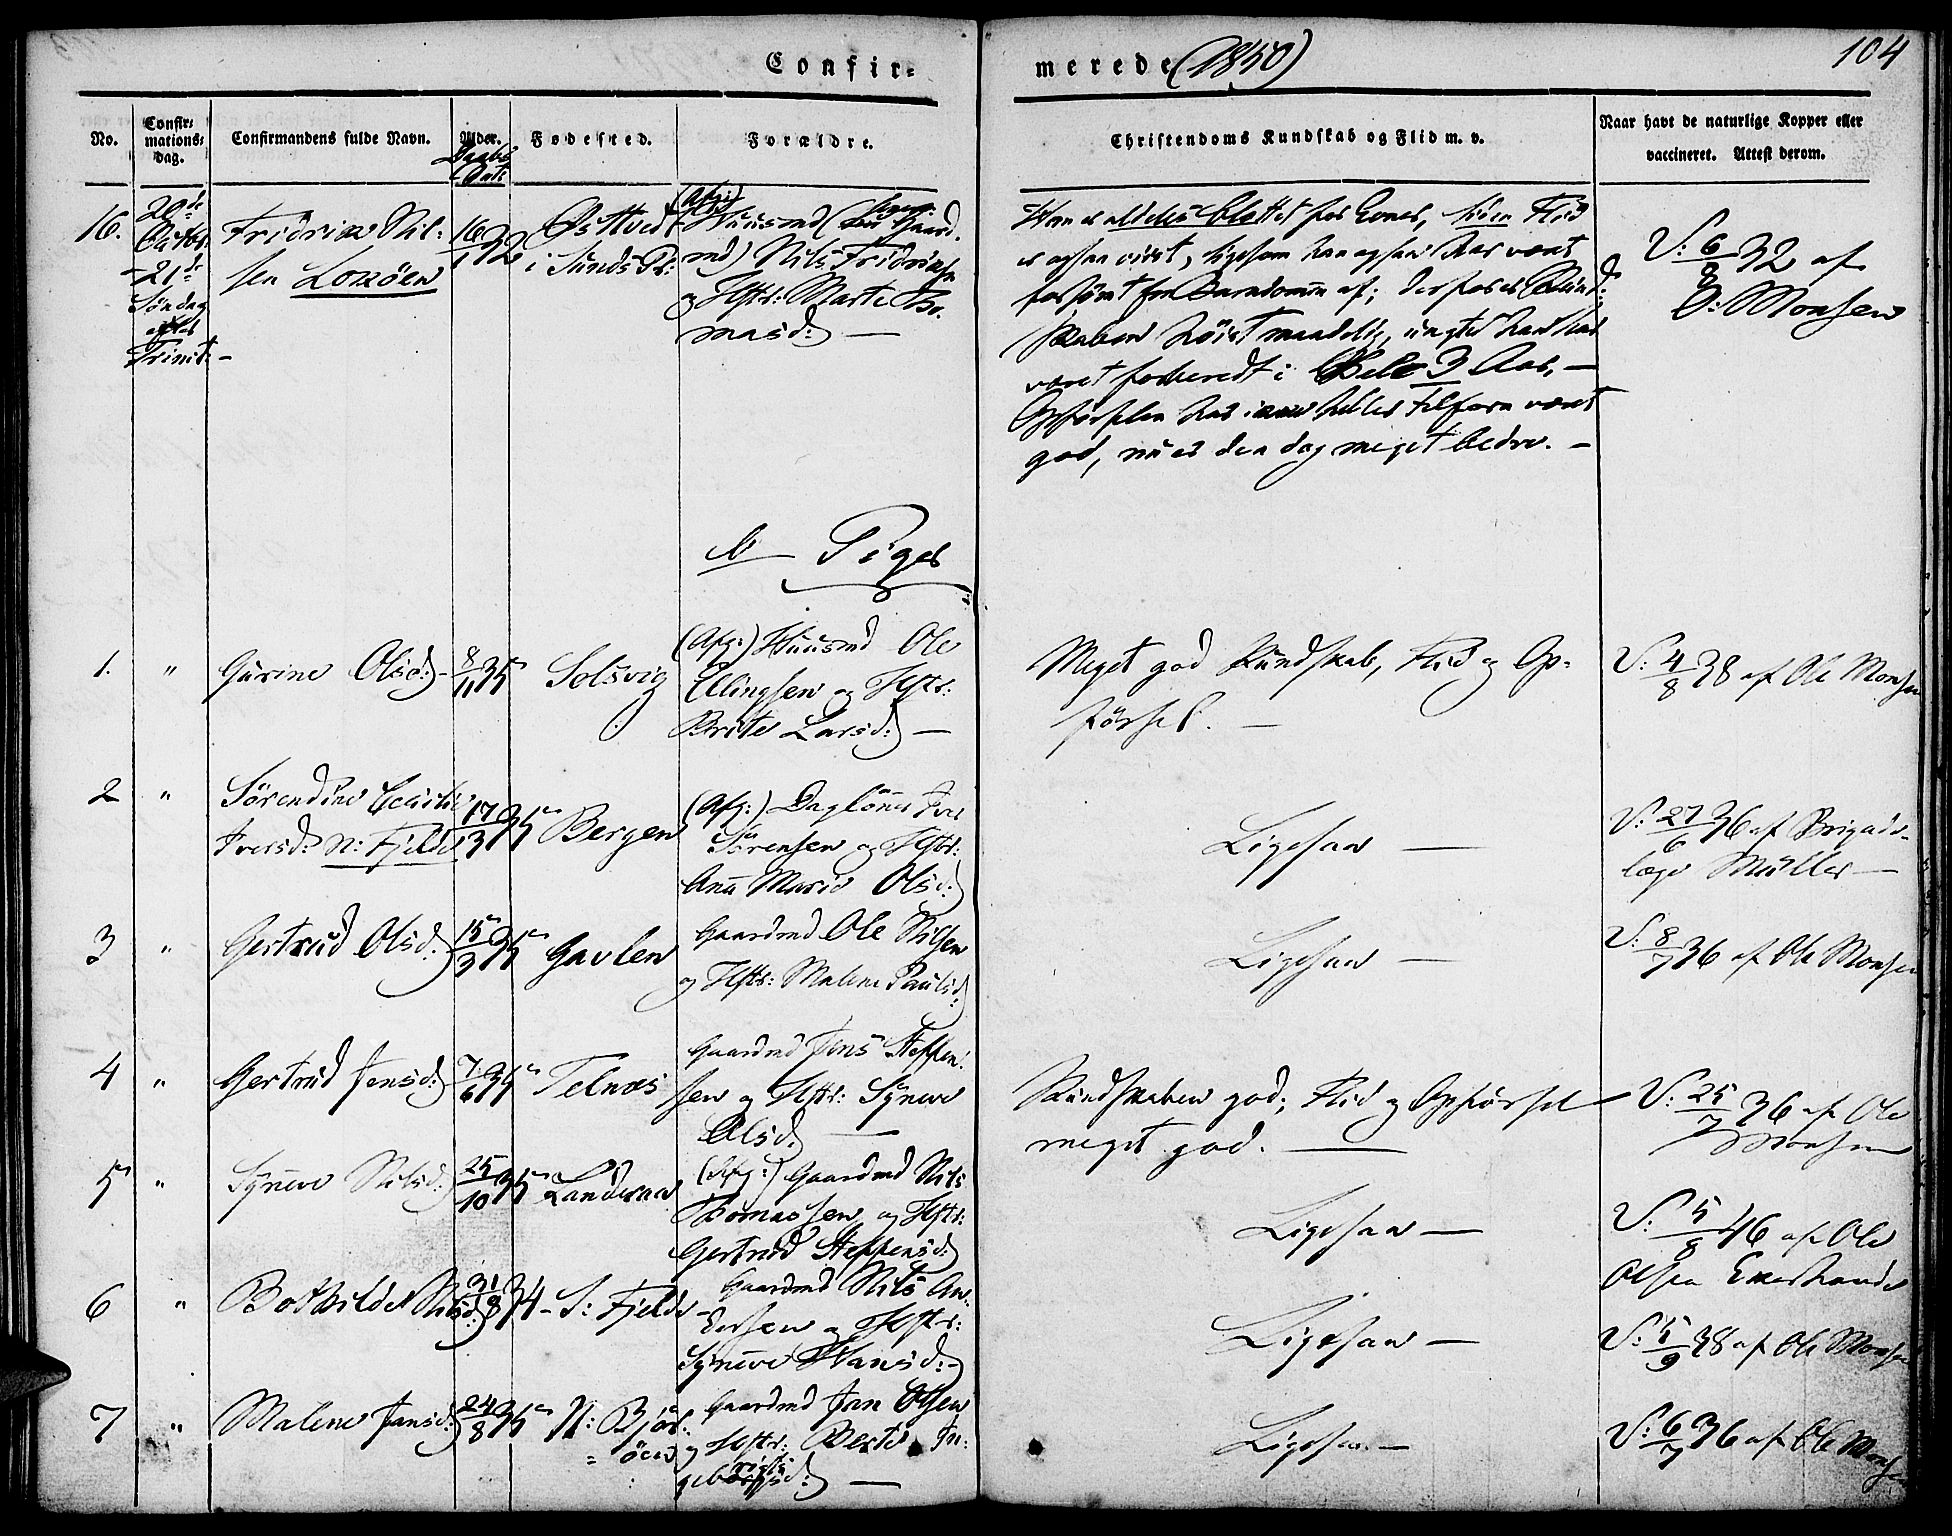 Confir=
merede (1850)
104
No.
Confir=
mations=
dag.
Confirmandens fulde Navn.
Alder.
Daabs
Dats
Fødested.
Forældre.
Christendoms Kundskab og Flid m. v.
Naar havt de naturlige Kopper eller
vaccineret. Attest derom.
16.
20de
Octbr.
- 21de
Søndag
efter
Trinit: -
Fridrik Nil=
sen Loxöen
16/1 32
Østtvedt
i Sunds Pr:
(Afg:)
Huusmd (Gaard.
md) Nils Fridriksen
og Hstr: Marte Tho.
masd: -
Han er aldeles blottet for Evner, hvien Flid
er ogsaa viist, ligesom han ogsaa har været
forsömt fra Barndommen af; derfor er Kund
skaben höist maadelig, uagtet han har
været forberedt i hele 3 Aar. -
Opförselen har heller tilforn været
god, nu er den dog meget bedre. -
V: 6/8 32 af
O: Monsen
b Piger
1.
"
Gurine Olsd: -
8/11 35
Solsvig
(Afg:) Huusmd Ole
Ellingsen og Hstr:
Brite Larsd: -
Meget god Kundskab, Flid og Op=
förssel. -
V: 4/8 38 af Ole Monsen
2
"
Sörendine Cecilie
Iversd: N: Fjelde
17/3 35
Bergen
(Afg:) Daglönner Iver
Sörensen og Hstr:
Ana Marie Olsd:
Ligesaa -
V: 27/6 36 af Brigade-
læge Müller -
3
"
Gertrud Olsd:
15/3 35
Gavlen
Gaardmd Ole Nilsen
og Hstr: Malene Paulsd:
Ligesaa -
V: 8/7 36 af Ole Monsen
4
"
Gertrud Jensd:
7/6 35
Telnæs
Gaardmd Jens Steffen=
sen og Hstr: Synneve
Olsd: -
Kundskaben god; Flid og Opförsel
meget god. -
V: 25/7 36 af Ole
Monsen
5
"
Synneve Nilsd:
25/10 35
Landeraa
(Afg:) Gaardmd Nils
Thomassen og Hstr:
Gertrud Steffensd:
Ligesaa -
V: 5/8 46 af Ole
Olsen Ekerhovde
6
"
Bothilde Nilsd:
31/8 34 -
S: Fjelde
Gaardmd Nils An=
dersen og Hstr:
Synneve Hansd: -
Ligesaa -
V: 5/9 38 af Ole Monsen
7
"
Malene Jansd:
24/8 35
N: Bjor=
= öen
Gaardmd Jan Olsen
og Hstr: Berte In=
gebrigtsd: -
Ligesaa -
V: 6/7 36 af Ole Monsen